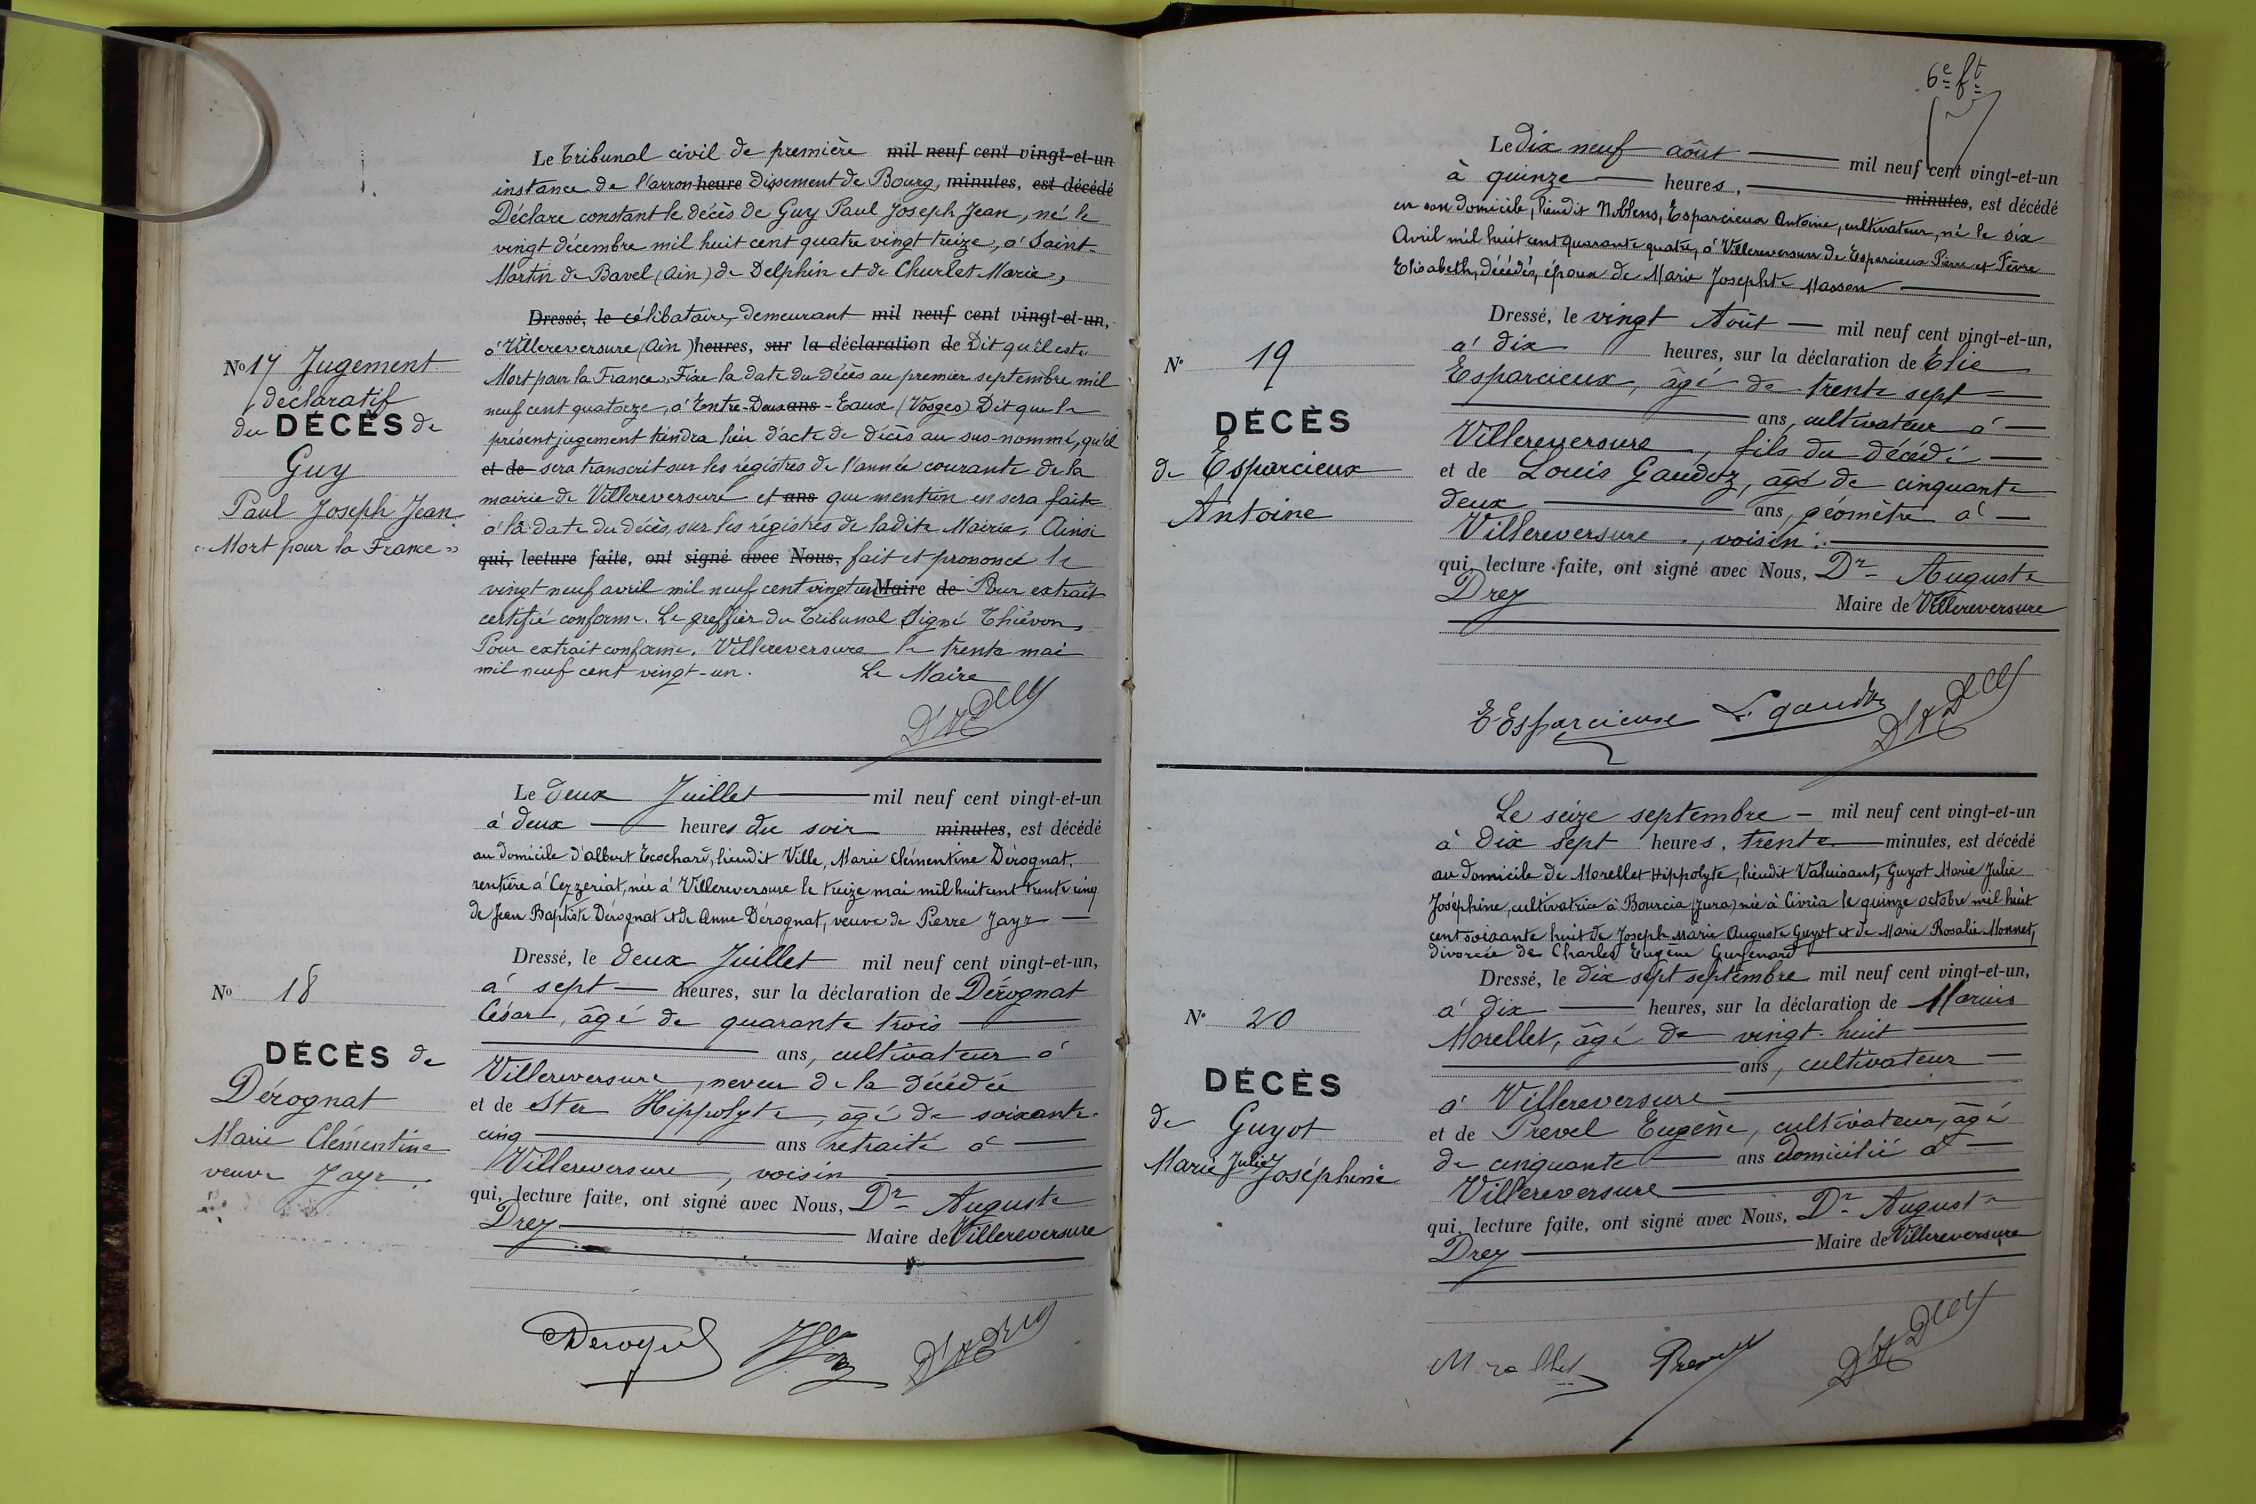 Le Tribunal civil de première mil neuf cent vingt-et-un
instance de l'arron heure dissement de Bourg, minutes, est décédé
Déclare constant le décès de Guy Paul Joseph Jean, né le
vingt décembre mil huit cent quatre vingt treize, à Saint-
Martin de Bavel (Ain) de Delphin et de Churlet Marie,
Dressé, le célibataire, demeurant mil neuf cent vingt-et-un,
à Villereversure (Ain) heures, sur la déclaration de Dit qu'il est "
Mort pour la France". Fixe la date du décès au premier septembre mil
neuf cent quatorze, à Entre-Deux ans - Eaux (Vosges) Dit que le
présent jugement tiendra lieu d'acte de décès au sus-nommé, qu'il
et de sera transcrit sur les régistres de l'année courante de la
mairie de Villereversure et ans que mention en sera faite
à la date du décès, sur les régistres de ladite Mairie. Ainsi
qui, lecture faite, ont signé avec Nous, fait et prononcé le
vingt neuf avril mil neuf cent vingt un Maire de Pour extrait
certifié conforme. Le greffier du Tribunal Signé Thiévon,
Pour extrait conforme. Villereversure le trente mai
mil neuf cent vingt-un. Le Maire
Dr A Drey
No 17 Jugement
déclaratif
du DÉCÈS de
Guy
Paul Joseph Jean
"Mort pour la France"
Le deux Juillet mil neuf cent vingt-et-un
à deux heures du soir minutes, est décédé
au domicile d'albert Ecochard, lieudit Ville, Marie Clémentine Dérognat,
rentière à Cezzeriat, née à Villereversure le treize mai mil huit cent trente cinq
de Jean Baptiste Dérognat et de Anne Dérognat, veuve de Pierre Jayr
Dressé, le deux Juillet mil neuf cent vingt-et-un,
à sept heures, sur la déclaration de Dérognat
César, âgé de quarante trois
ans, cultivateur à
Villereversure, neveu de la décédée
et de Ster Hippolyte, âgé de soixante-
cinq ans retraité à
Villereversure, voisin
qui, lecture faite, ont signé avec Nous, Dr Auguste
Drey Maire de Villereversure
No 18
DÉCÈS de
Dérognat
Marie Clémentine
veuve Jayr.
CDerognat
Dr A Drey
6e ft
Le dix neuf août mil neuf cent vingt-et-un
à quinze heures, minutes, est décédé
en son domicile, lieudit Noblens, Esparcieux Antoine, cultivateur, né le six
Avril mil huit cent quarante quatre, à Villereversure de Esparcieux Pierre et Fèvre
Elisabeth, décédés, époux de Marie Josephte Masson
Dressé, le vingt Août mil neuf cent vingt-et-un,
à dix heures, sur la déclaration de Elie
Esparcieux, âgé de trente sept
ans, cultivateur à
Villereversure, fils du décédé
et de Louis Gaudoz, âgé de cinquante
deux ans, géomètre à
Villereversure, voisin
qui, lecture faite, ont signé avec Nous, Dr Auguste
Drey Maire de Villereversure
No 19
DÉCÈS
de Esparcieux
Antoine
E Esparcieux L. gaudoz Dr A Drey
Le seize septembre mil neuf cent vingt-et-un
à dix sept heures, trente minutes, est décédé
au domicile de Morellet Hippolyte, lieudit Valuisant, Guyot Marie Julie
Joséphine, cultivatrice à Bourcia (Jura) née à Civria le quinze octobre mil huit
cent soixante huit de Joseph Marie Auguste Guyot et de Marie Rosalie Monnet,
divorcée de Charles Eugène Guigenard
Dressé, le dix sept septembre mil neuf cent vingt-et-un,
à dix heures, sur la déclaration de Marius
Morellet, âgé de vingt-huit
ans, cultivateur
à Villereversure
et de Prevel Eugène, cultivateur, âgé
de cinquante ans domicilié à
Villereversure
qui, lecture faite, ont signé avec Nous, Dr Auguste
Drey Maire de Villereversure
No 20
DÉCÈS
de Guyot
Marie Julie Joséphine
Morellet Prevel Dr A Drey